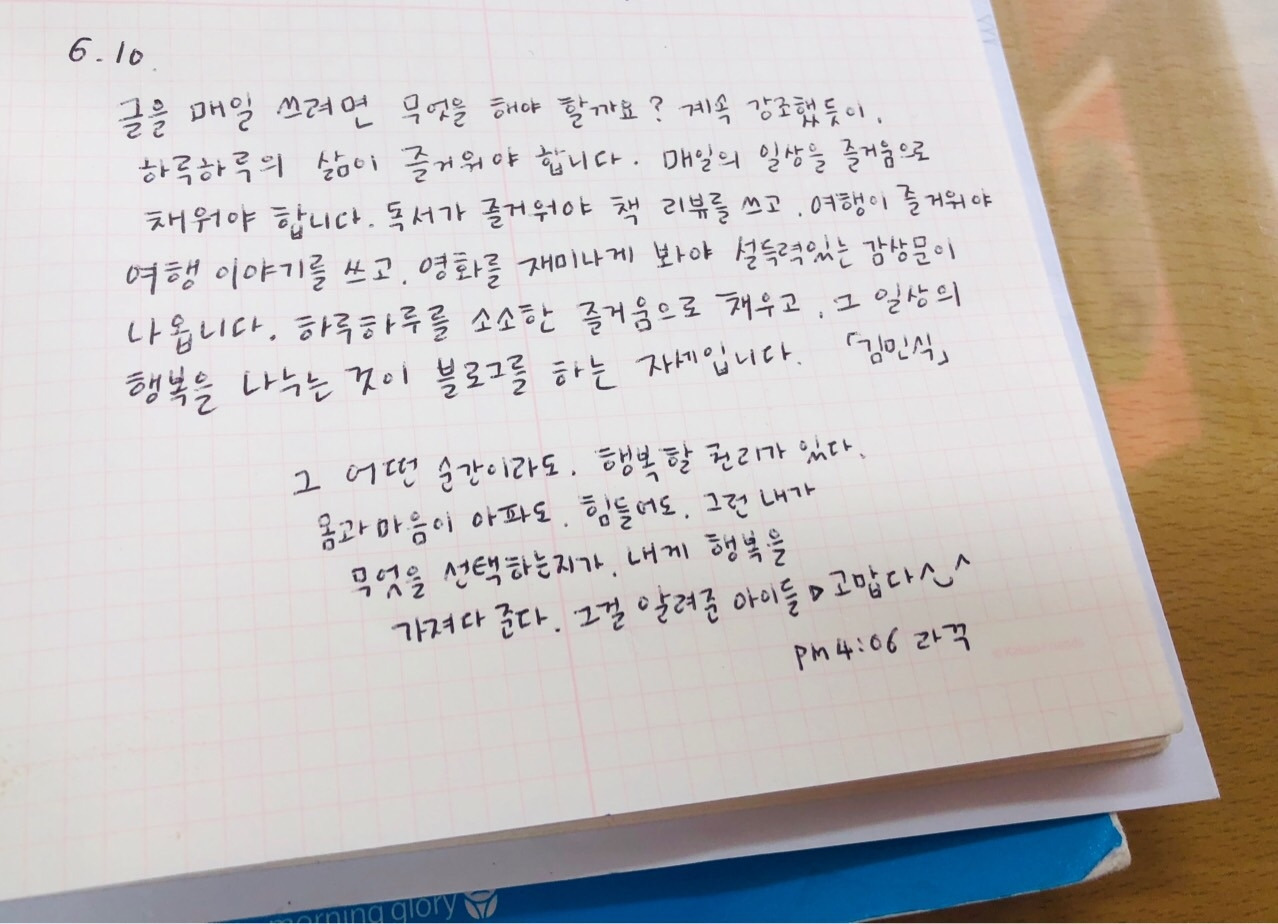 6.10.
글을 매일 쓰려면 무엇을 해야 할까요? 계속 강조했듯이,
하루하루의 삶이 즐거워야 합니다. 매일의 일상을 즐거움으로
채워야 합니다. 독서가 즐거워야 책 리뷰를 쓰고, 여행이 즐거워야
여행 이야기를 쓰고, 영화를 재미나게 봐야 설득력있는 감상문이
나옵니다. 하루하루를 소소한 즐거움으로 채우고, 그 일상의
행복을 나누는 것이 블로그를 하는 자세입니다. 「김민식」
그 어떤 순간이라도, 행복할 권리가 있다.
몸과 마음이 아파도, 힘들어도, 그런 내가
무엇을 선택하는지가, 내게 행복을
가져다 준다. 그걸 알려준 아이들 고맙다^^
pm 4:06 라꾹
morning glory